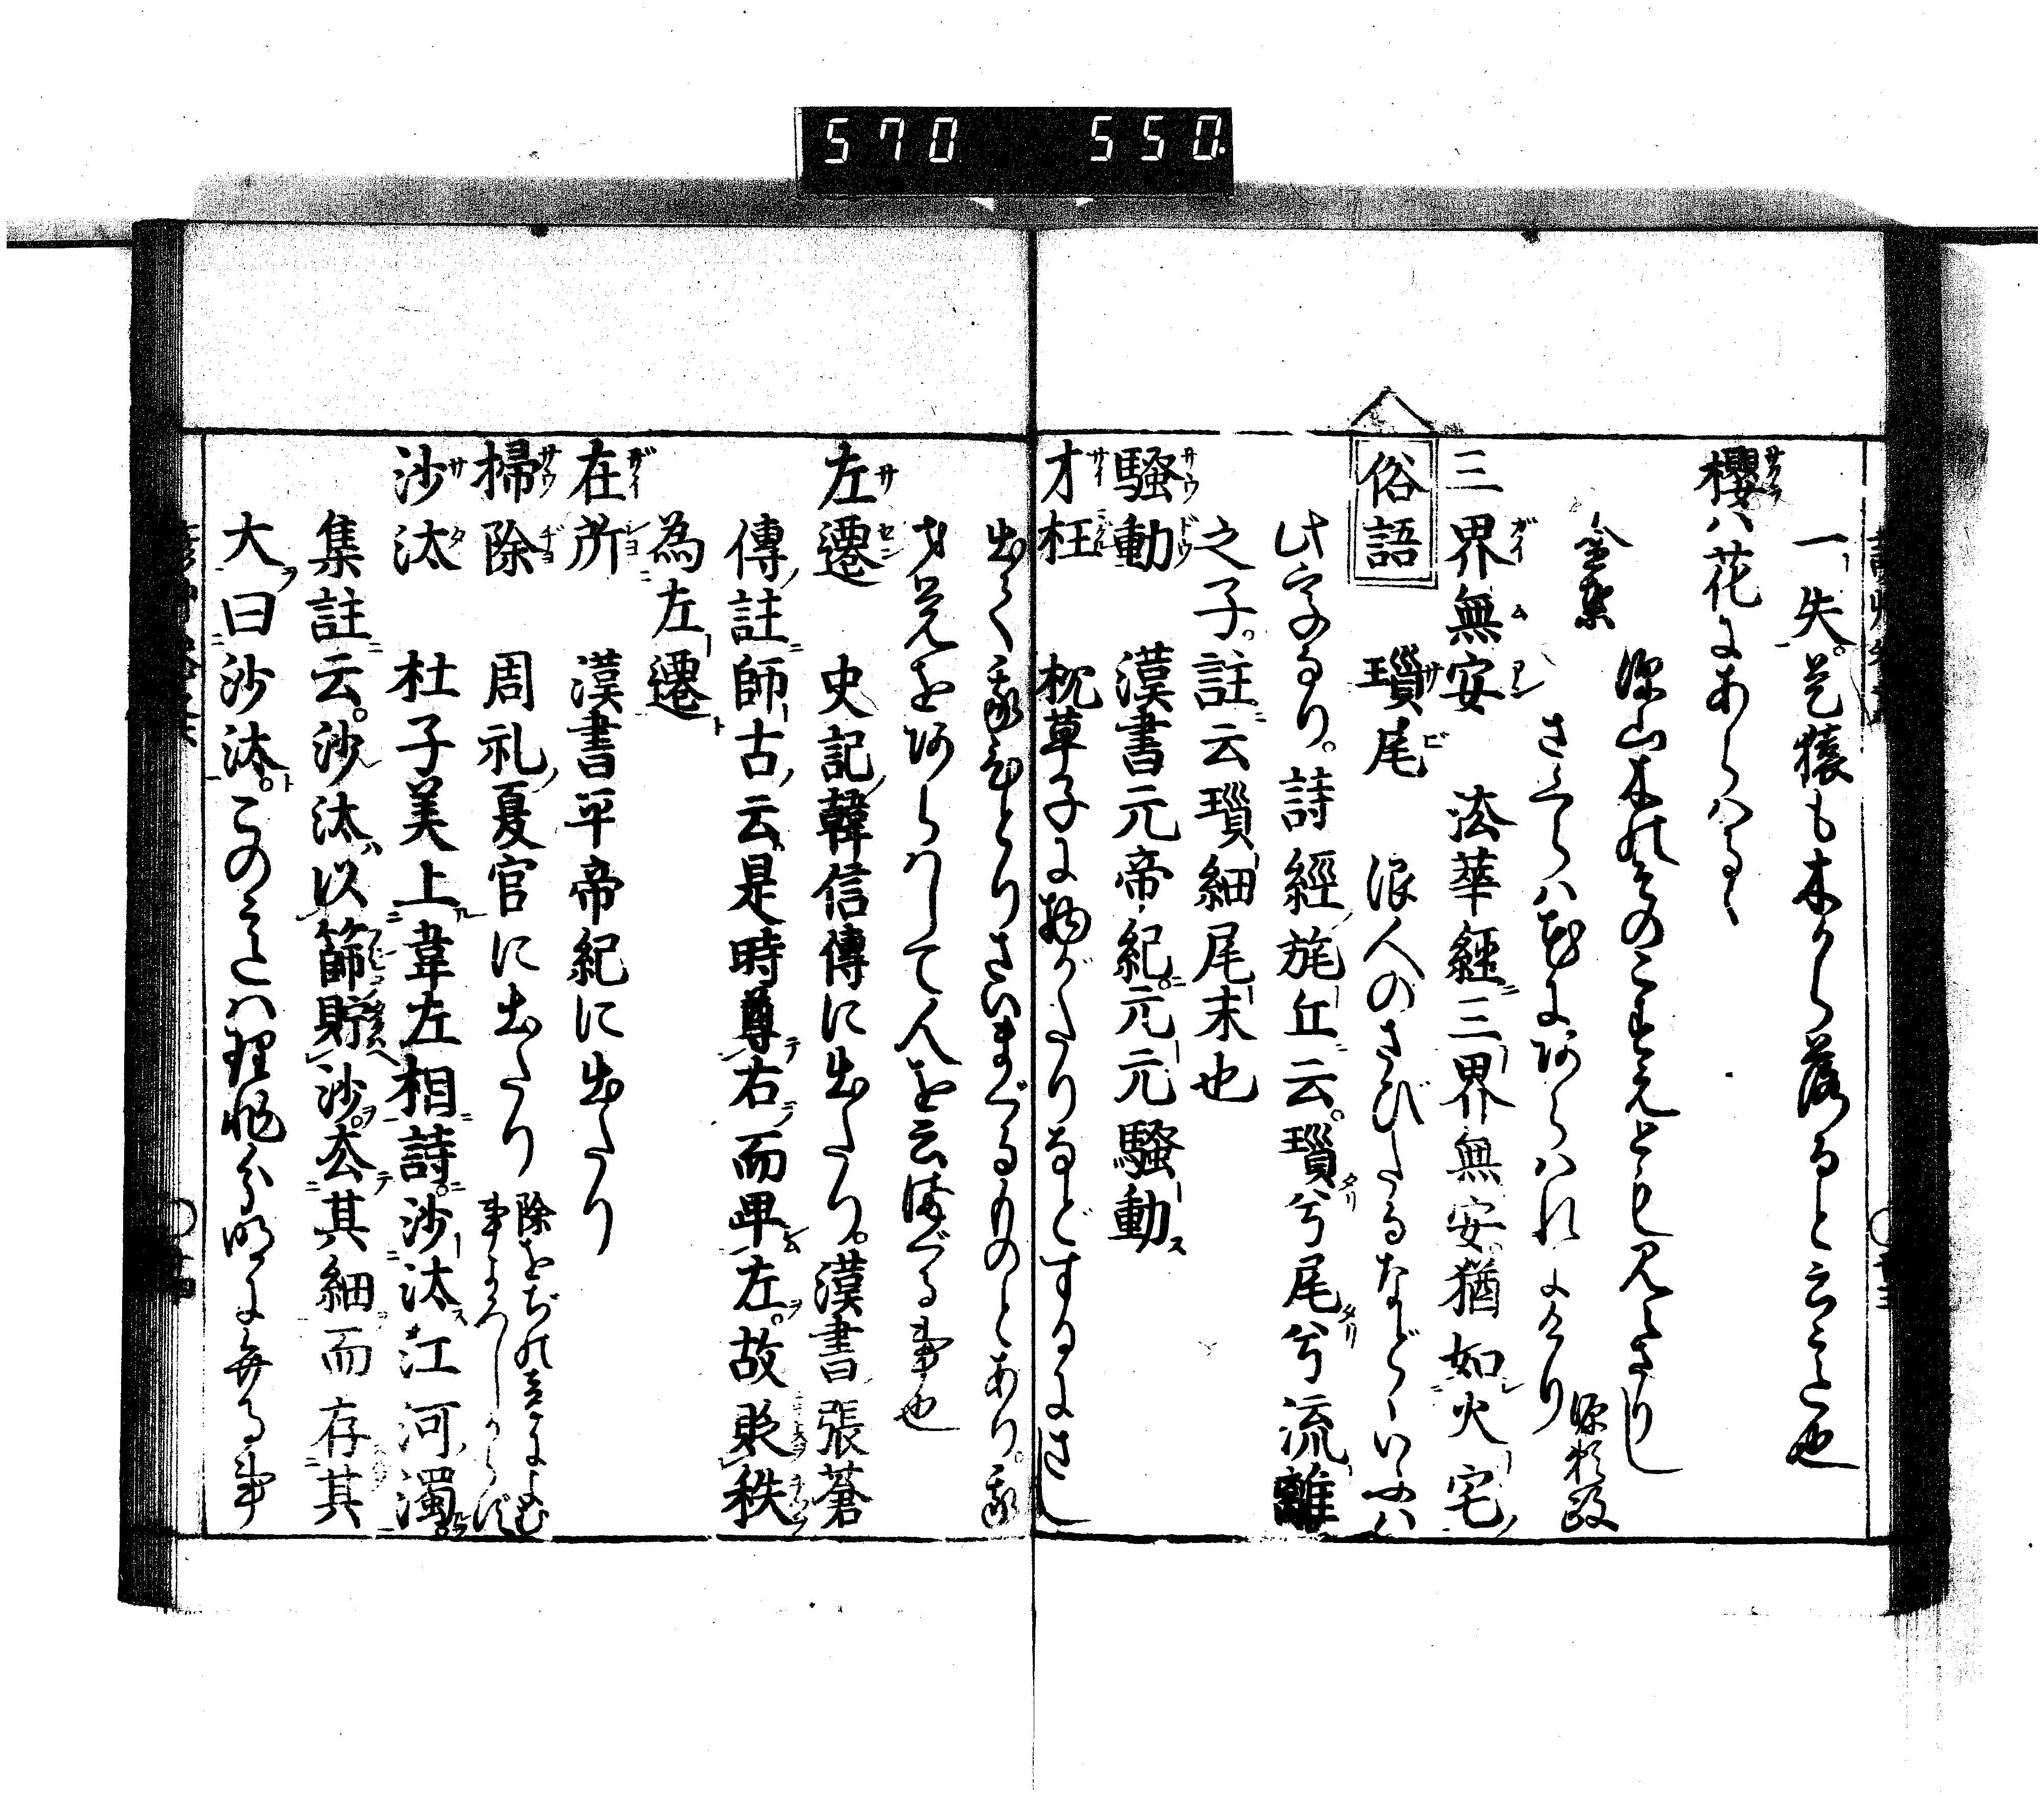 570 550
一失。是猿も木から落ると云こと也
櫻ハ花にあらハるゝ
金葉 深山木のそのこずゑとも見えざりし
さくらハ花にあらハれにけり 源頼政
三界無安 法華經三界無安猶如火宅
俗語 瑣尾 浪人のさびたるなどゝいふハ
此字なり。詩經旄丘云。瑣兮尾兮流離
之子。註云瑣細尾末也
騒動 漢書元帝紀。元元騒動
才枉 枕草子に物がたりなどするにさし
出て我ひとりさいまぐるものとあり。我
才覚をあらハして人を云まぐる事也
左遷 史記韓信傳に出たり。漢書張蒼
傳註師古云是時尊右而卑左。故貶秩
為左遷
在所 漢書平帝紀に出たり
掃除 周礼夏官に出たり 除をぢの音によむ
事よろしからず
沙汰 杜子美上韋左相詩。沙汰江河濁
集註云。沙汰以篩貯沙。去其細而存其
大曰沙汰。このこゝろハ理非分明に無る事